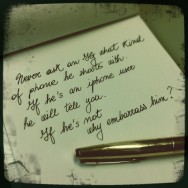 Never ask an Ig what kind
of phone he shoots with
If he's an iphone user
he will tell you.
If he's not
why embarrass him?